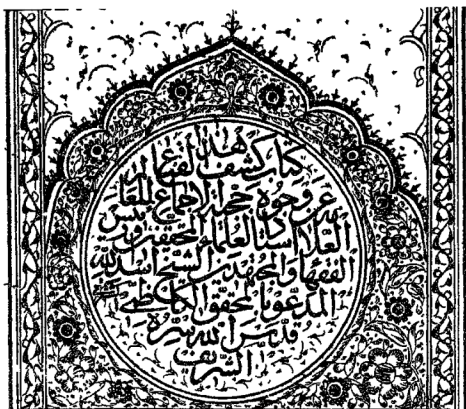 هذا
كتاب كشف القناع
عن وجوه حجية الاجماع للعالم
العلام استاد العلماء المحققين ورئيس
الفقهاء والمجتهدين الشيخ اسد الله
المدعو بالمحقق الكاظمي
قدس الله سره
الشريف